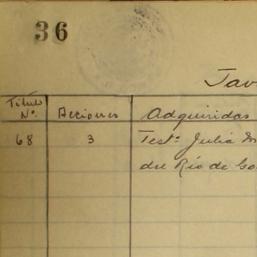 36
Jav
Título Nº. Acciones Adquiridas
68 3 Testª Julia M
del Río de Go